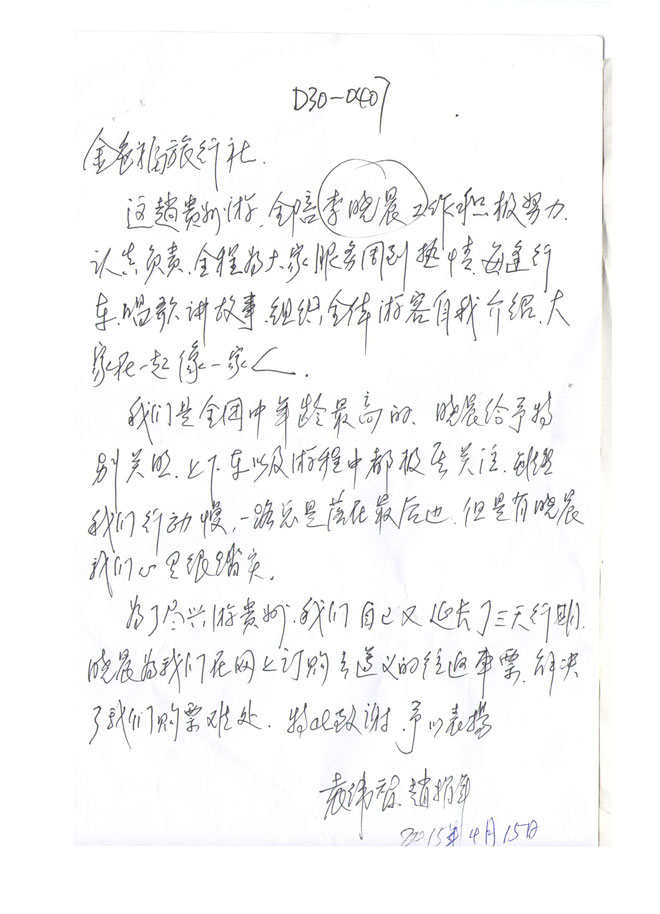 D30-0407
金色福旅行社.
这趟贵州游,全陪李晓晨工作积极努力.
认真负责,全程为大家服务周到热情.每逢行
车,唱歌讲故事,组织全体游客自我介绍.大
家在一起像一家人.
我们是全团中年龄最高的.晓晨给予特
别关照.上下车以及游程中都极其关注.
我们行动慢,一路总是落在最后边.但是有晓晨
我们心里很踏实.
为了尽兴游贵州.我们自己又延长了三天行期.
晓晨为我们在网上订购去遵义的往返车票,解决
了我们购票难处.特此致谢.予以表扬
袁 赵
2015年4月15日